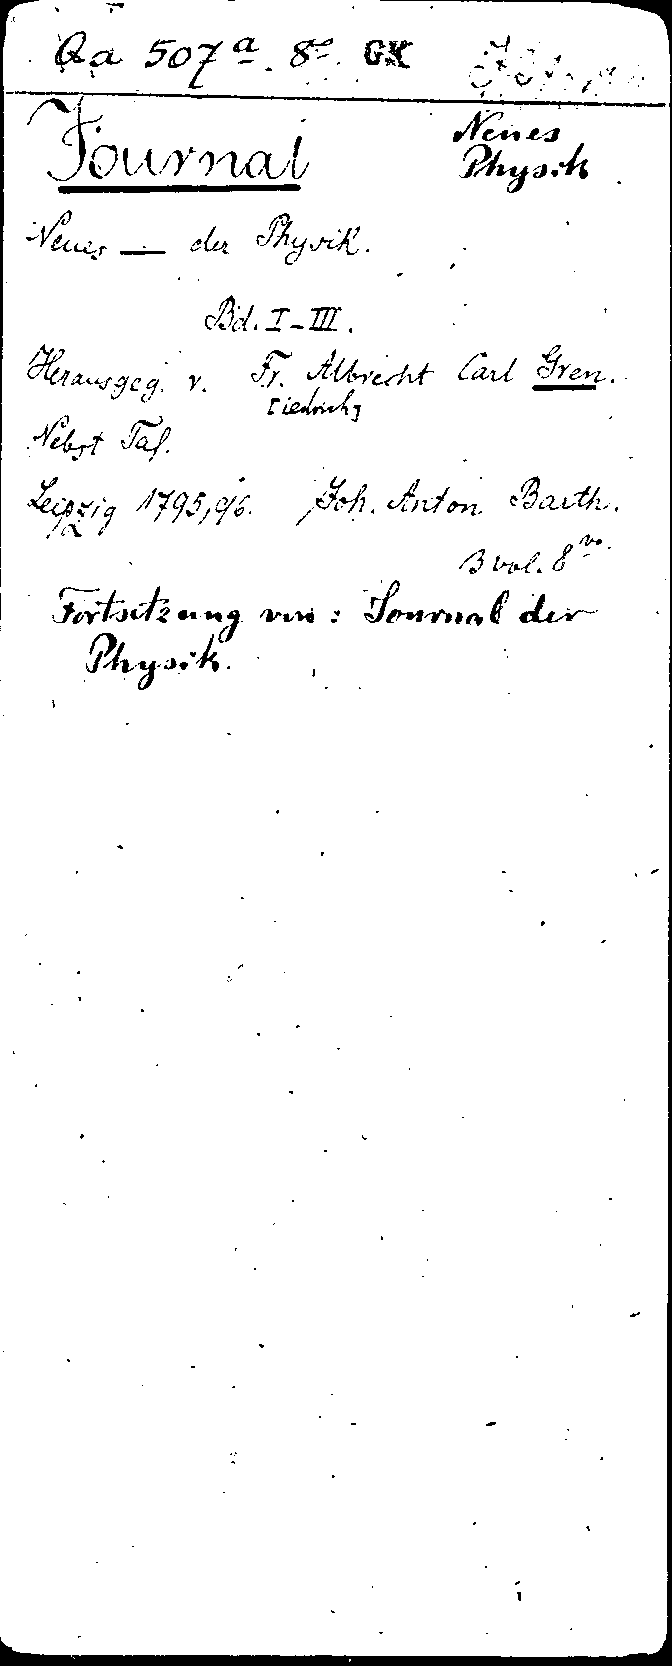 Qa 507 a. 8o. GK
Journal
Neues
Physik
Neues — der Physik.
Bd. I-III.
Herausgeg. v. Fr. Albrecht Carl Gren.
[iedrich]
Nebst Taf.
Leipzig 1795,96. Joh. Anton Barth.
3 vol. 8vo.
Fortsetzung von: Journal der
Physik.